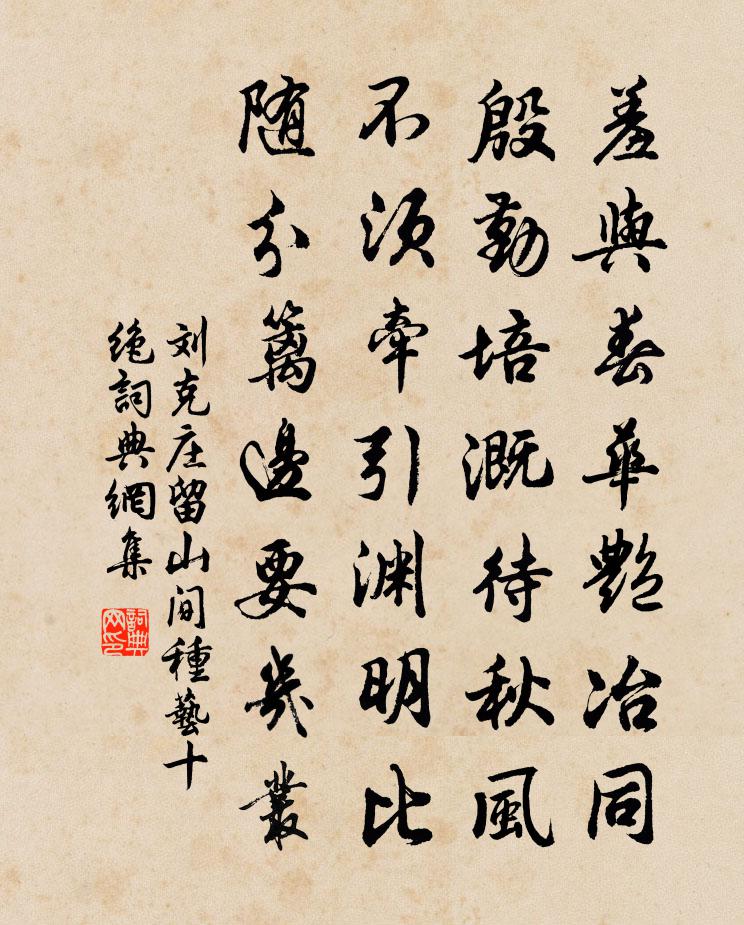 羞與春華艷冶同
殷勤培溉待秋風
不須牽引淵明比
随分籬邊要幾叢
刘克庄留山间種藝十
绝詞典網集
詞典网印